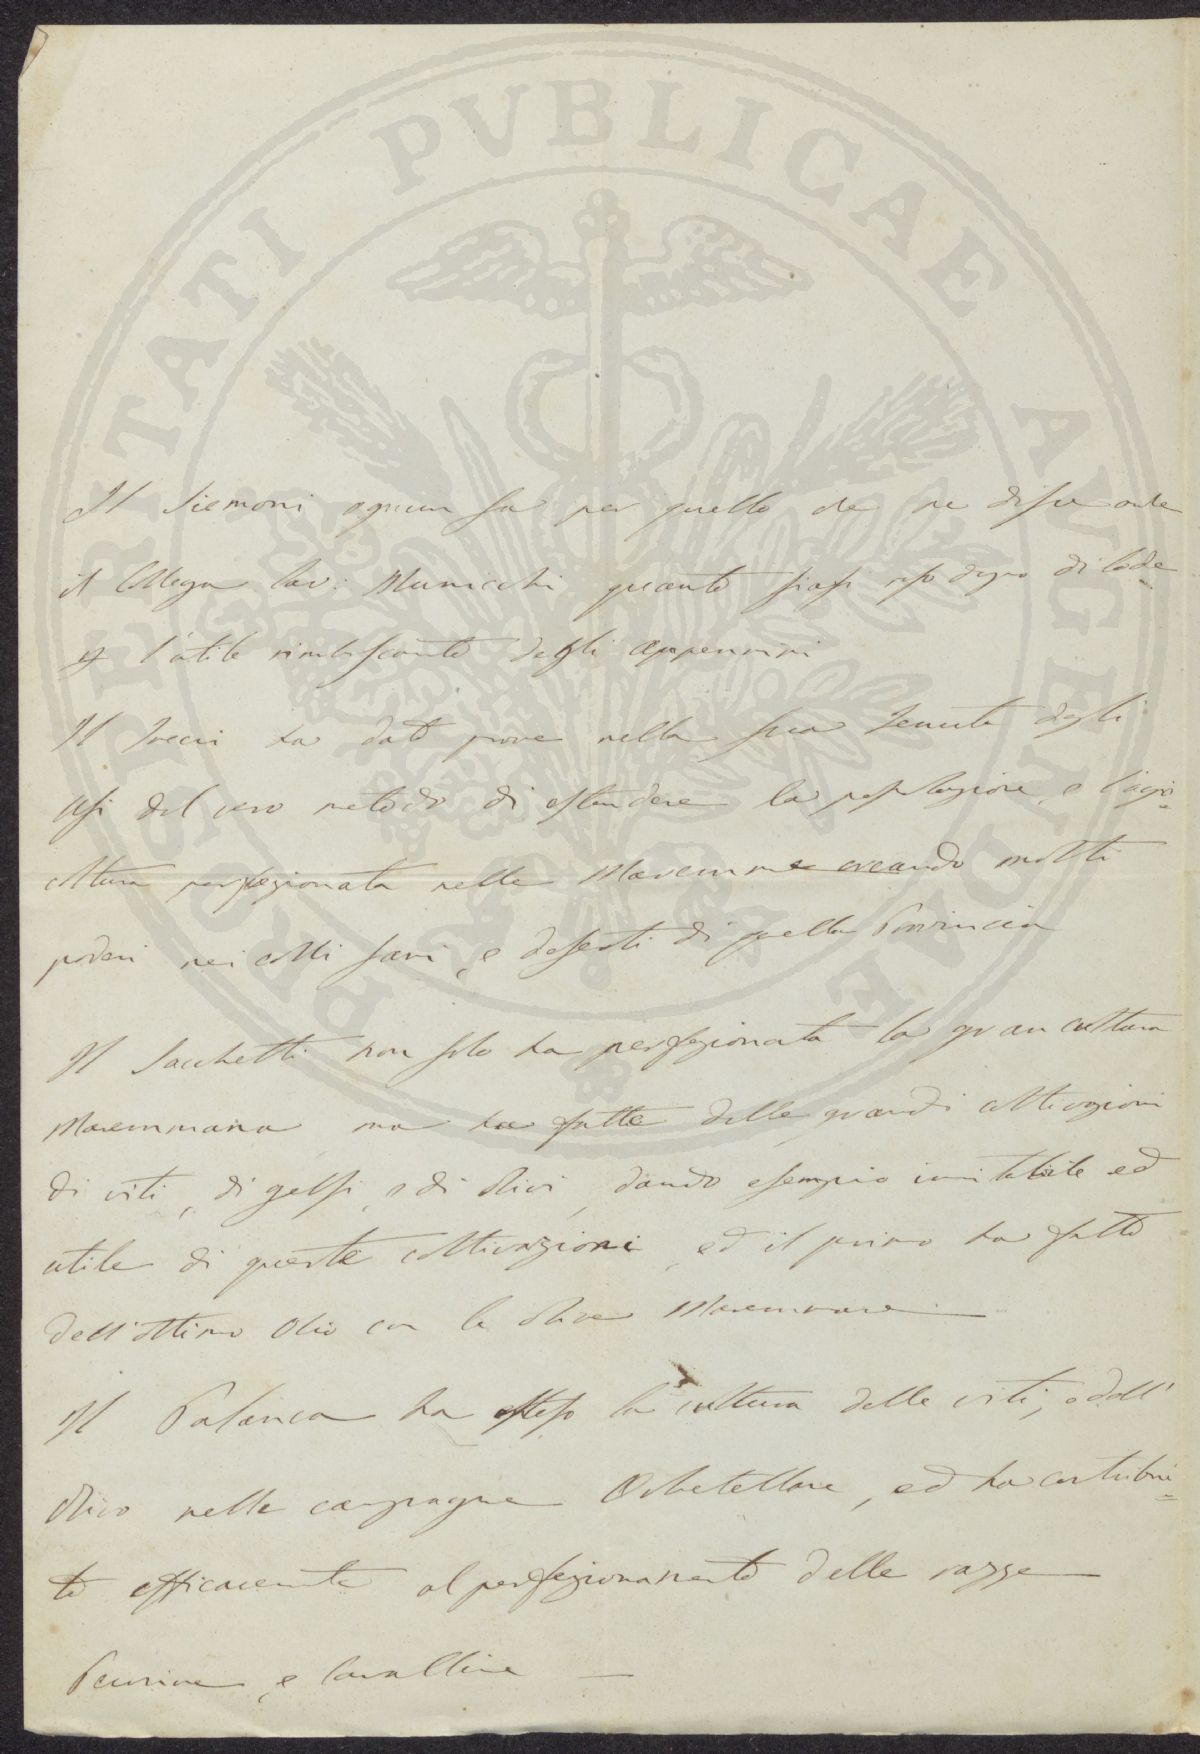 PROSPERITATI PVBLICAE AVGENDAE
Il Siemoni ognun sa per quello che ne disse anche
il Collega Cav: Municchi quanto siasi reso degno di lode
l'utile rimboscamento degli appennini
Il Ricci ha dato prove nella sua Tenuta degli
Usi del vero metodo di estendere la popolazione, e l'agri=
coltura perfezionata nelle Maremme creando molti
poderi nei colli sani, e deserti di quella Provincia
Il Sacchetti non solo ha perfezionata la gran cultura
Maremmana ma ha fatte delle grandi coltivazioni
di viti, di gelsi, e di olivi, dando esempio imitabile ed
utile di queste coltivazioni, ed il primo ha fatto
dell'ottimo Olio con le olive Maremmane
Il Palanca ha esteso la cultura delle viti, e dell'
olivo nelle campagne Orbetellane, ed ha contribui=
to efficacemente al perfezionamento delle razze
Pecorine, e Cavalline